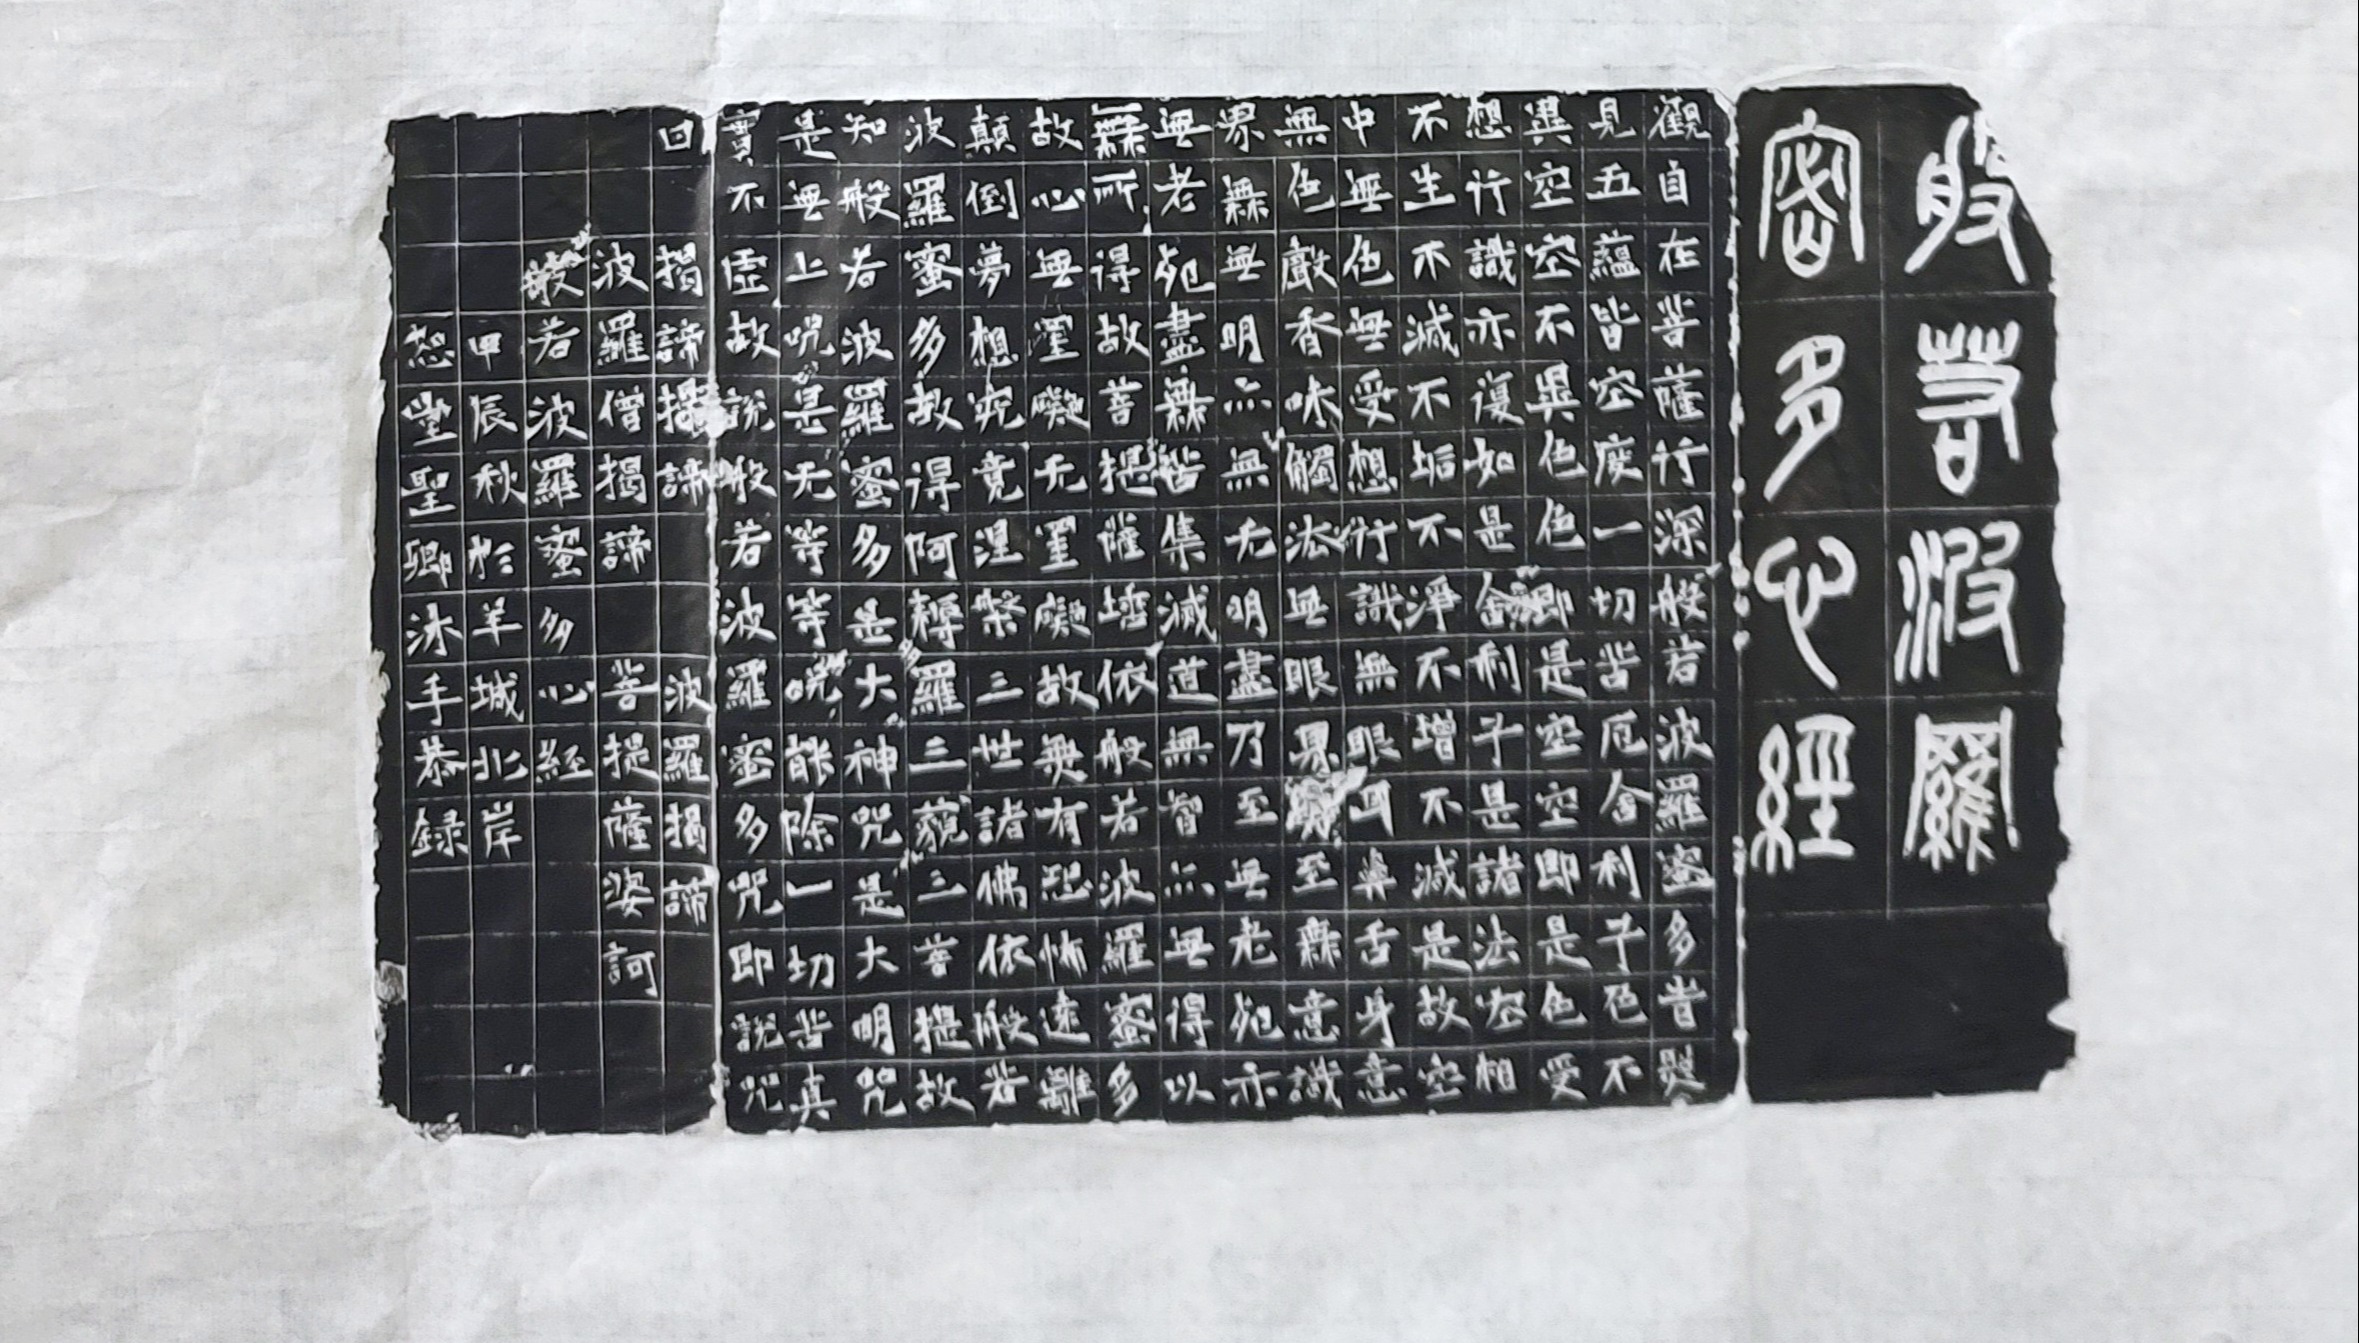 般若波羅
密多心經
觀自在菩薩行深般若波羅蜜多旹照
見五蘊皆空度一切苦厄舍利子色不
異空空不異色色即是空空即是色受
想行識亦復如是舍利子是諸法空相
不生不滅不垢不淨不增不減是故空
中無色無受想行識無眼耳鼻舌身意
無色聲香味觸法無眼界至無意識
界無無明亦無无明盡乃至無老死亦
無老死盡無苦集滅道無智亦無得以
無所得故菩提薩埵依般若波羅蜜多
故心無罣礙无罣礙故無有恐怖遠離
顛倒夢想究竟涅槃三世諸佛依般若
波羅蜜多故得阿耨多羅三藐三菩提故
知般若波羅蜜多是大神咒是大明咒
是無上咒是无等等咒能除一切苦真
實不虛故說般若波羅蜜多咒即說咒
曰 揭諦揭諦 波羅揭諦
波羅僧揭諦 菩提薩婆訶
般若波羅蜜多心經
甲辰秋於羊城北岸
堂聖卿沐手恭録